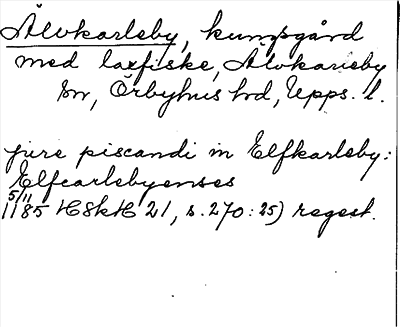 Älvkarleby, kungsgård
med laxfiske, Älvkarleby
sn, Örbyhus hd, Upps. l.
jure piscandi in Elfkarleby:
Elfcarlebyenses
5/11
1185 HSkH 21, s. 270: 25) regest.